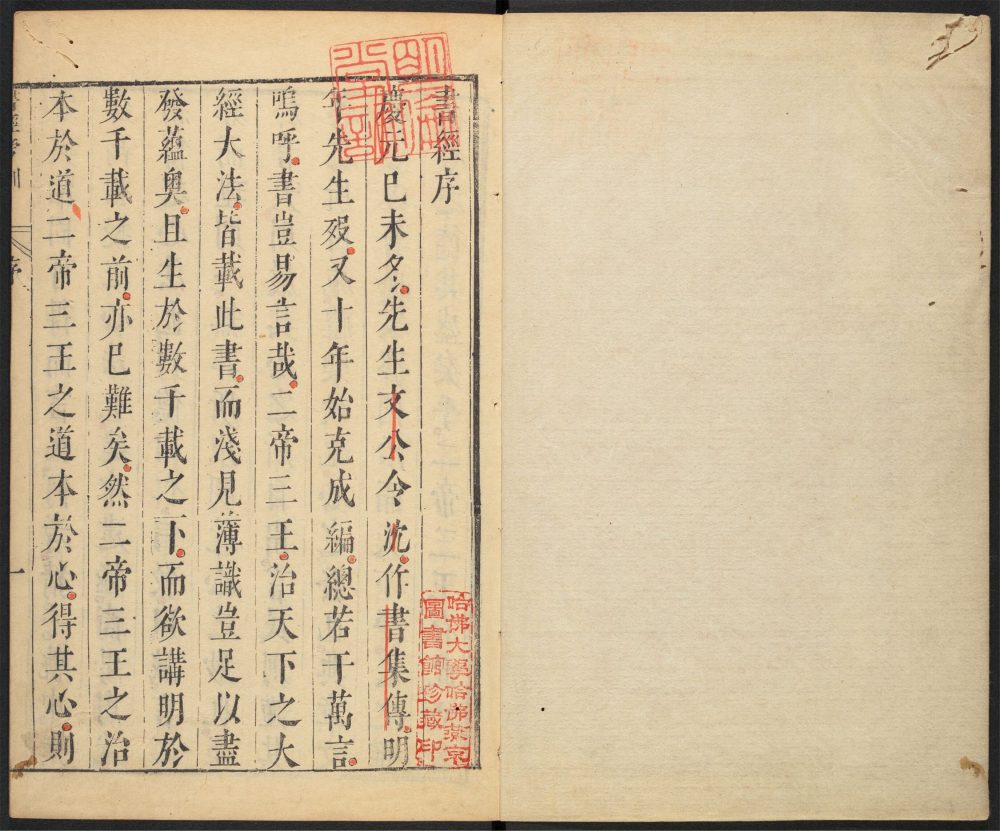 書經序
慶元已未冬先生文公令沈作書集傳明
年先生歿又十年始克成編總若干萬言
嗚呼書豈易言哉二帝三王治天下之大
經大法皆載此書而淺見薄識豈足以盡
發蘊奧且生於數千載之下而欲講明於
數千載之前亦已難矣然二帝三王之治
本於道二帝三王之道本於心得其心則
序
一
哈佛大學哈佛燕京
圖書館珍藏印